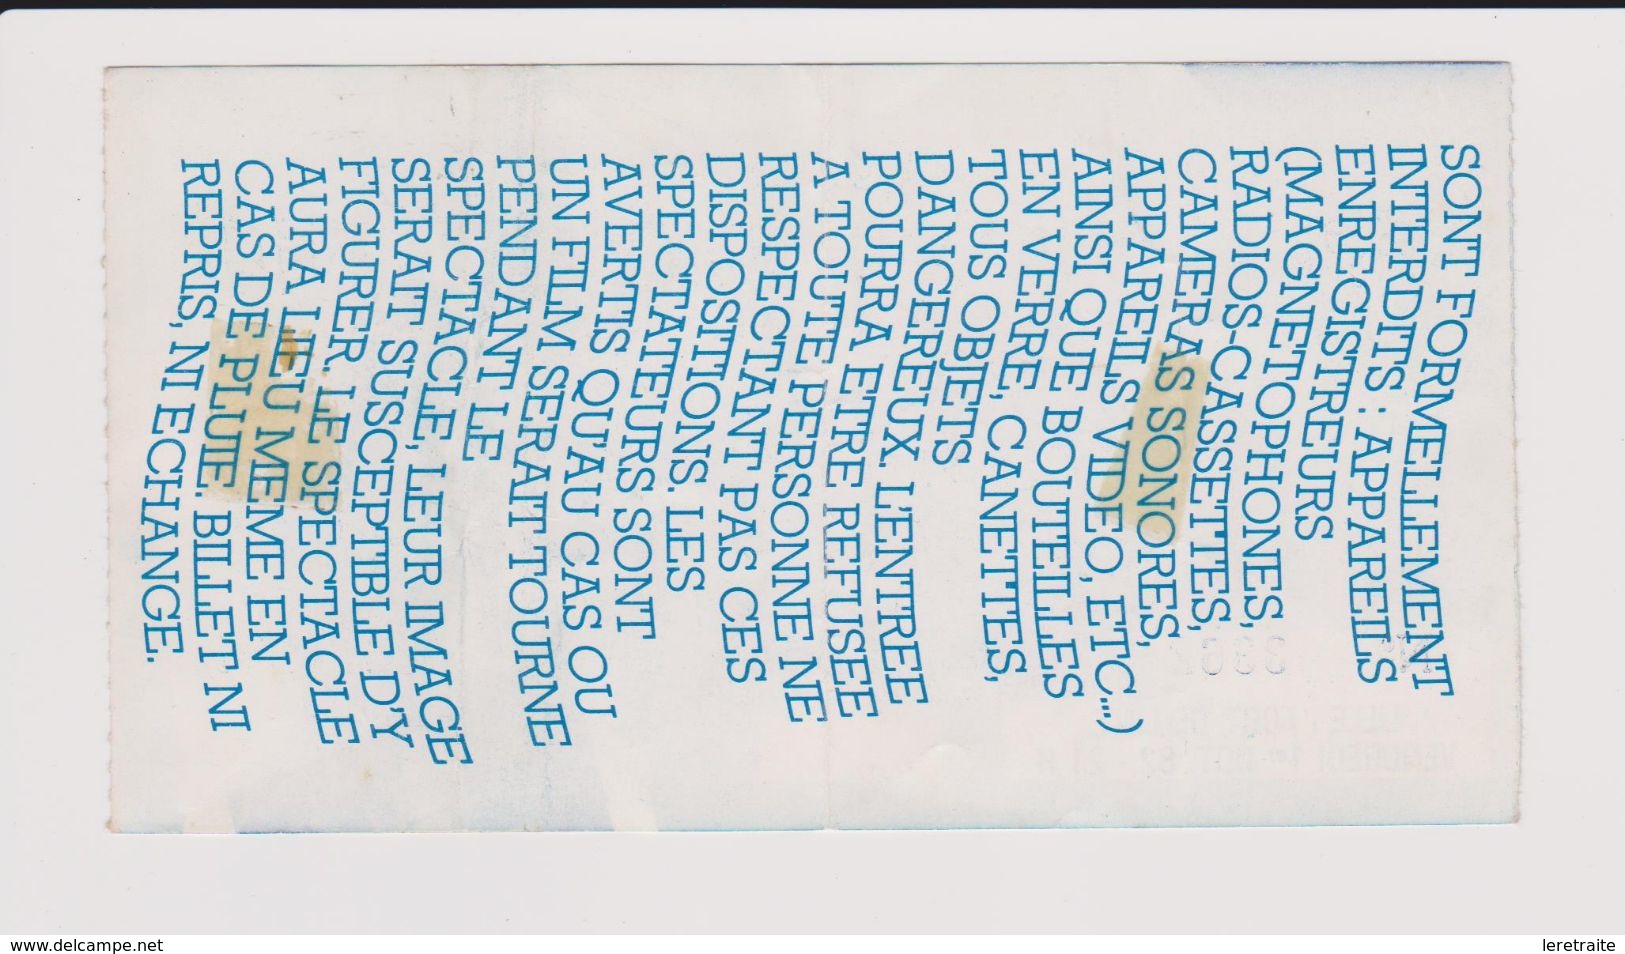 SONT FORMELLEMENT
INTERDITS : APPAREILS
ENREGISTREURS
(MAGNETOPHONES,
RADIOS-CASSETTES,
CAMERAS SONORES,
APPAREILS VIDEO, ETC...)
AINSI QUE BOUTEILLES
EN VERRE, CANETTES,
TOUS OBJETS
DANGEREUX. L'ENTREE
POURRA ETRE REFUSEE
A TOUTE PERSONNE NE
RESPECTANT PAS CES
DISPOSITIONS. LES
SPECTATEURS SONT
AVERTIS QU'AU CAS OU
UN FILM SERAIT TOURNE
PENDANT LE
SPECTACLE, LEUR IMAGE
SERAIT SUSCEPTIBLE D'Y
FIGURER. LE SPECTACLE
AURA LIEU MEME EN
CAS DE PLUIE. BILLET NI
REPRIS, NI ECHANGE.
www.delcampe.net
leretraite